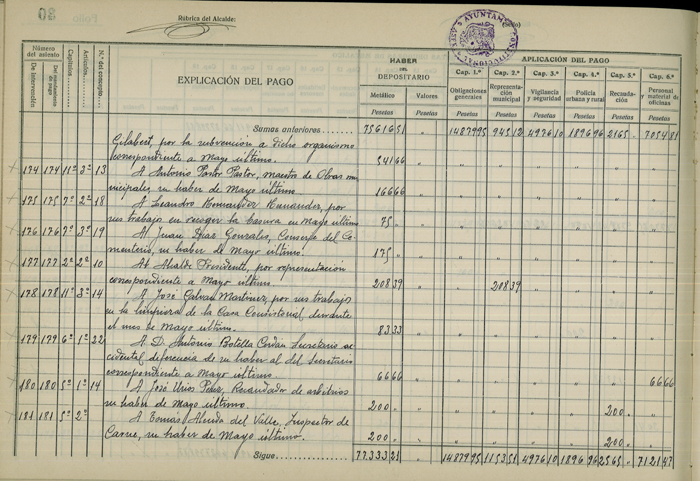 30
Rúbrica del Alcalde:
AYUNTAM CONSTITUCIONAL
EXPLICACIÓN DEL PAGO
HABER DEL DEPOSITARIO
APLICACIÓN DEL PAGO
Número del asiento
De intervención
Capítulos
Artículos
N.º del concepto
Metálico Valores
Cap. 1.º Cap. 2.º Cap. 3.ª Cap. 4.ª Cap. 5.ª Cap. 6.ª
Obligaciones generales Representación municipal Vigilancia y seguridad Policía urbana y rural Recaudación Personal y material de oficinas
Pesetas Pesetas Pesetas Pesetas Pesetas Pesetas Pesetas Pesetas
Sumas anteriores 75616 51 " 14879 95 945 12 4976 10 1896 96 2165 " 7054 81
Gilabert, por la subvencion a dicho organismo
correspondiente a Mayo último. 541 66
174 174 11º 3º 13 A Antonio Pastor Pastor, maestro de Obras mu
nicipales, su haber de Mayo último 166 66
175 175 7º 2º 18 A Leandro Bernander, por
sus trabajo en recoger la basura en Mayo último 75 "
176 176 7º 3º 19 A Juan Diaz Gonzales, Conserje del Ce-
menterio, su haber de Mayo último. 175 "
177 177 2º 2º 10 Al Alcalde Presidente, por representación
correspondiente a Mayo último 208 39 208 39
178 178 11º 3º 14 A José Galvan Martinez, por sus trabajo
en la limpieza de la Casa Consistorial, durante
el mes de Mayo último. 83 33
179 179 6º 1º 22 A D. Antonio Botella Cerdan Secretario ac
cidental, diferencia de su haber al del Secretario
correspondiente a Mayo último. 66 66 66 66
180 180 5º 1º 14 A José Urios Perez, Recaudador de arbitrios
su haber de Mayo último. 200 " 200 "
181 181 5º 2º A Tomás del Valle, Inspector de
Carne, su haber de Mayo último. 200 " 200 "
Sigue 77.333 21 14879 95 1153 51 4976 10 1896 96 2565 " 7121 47